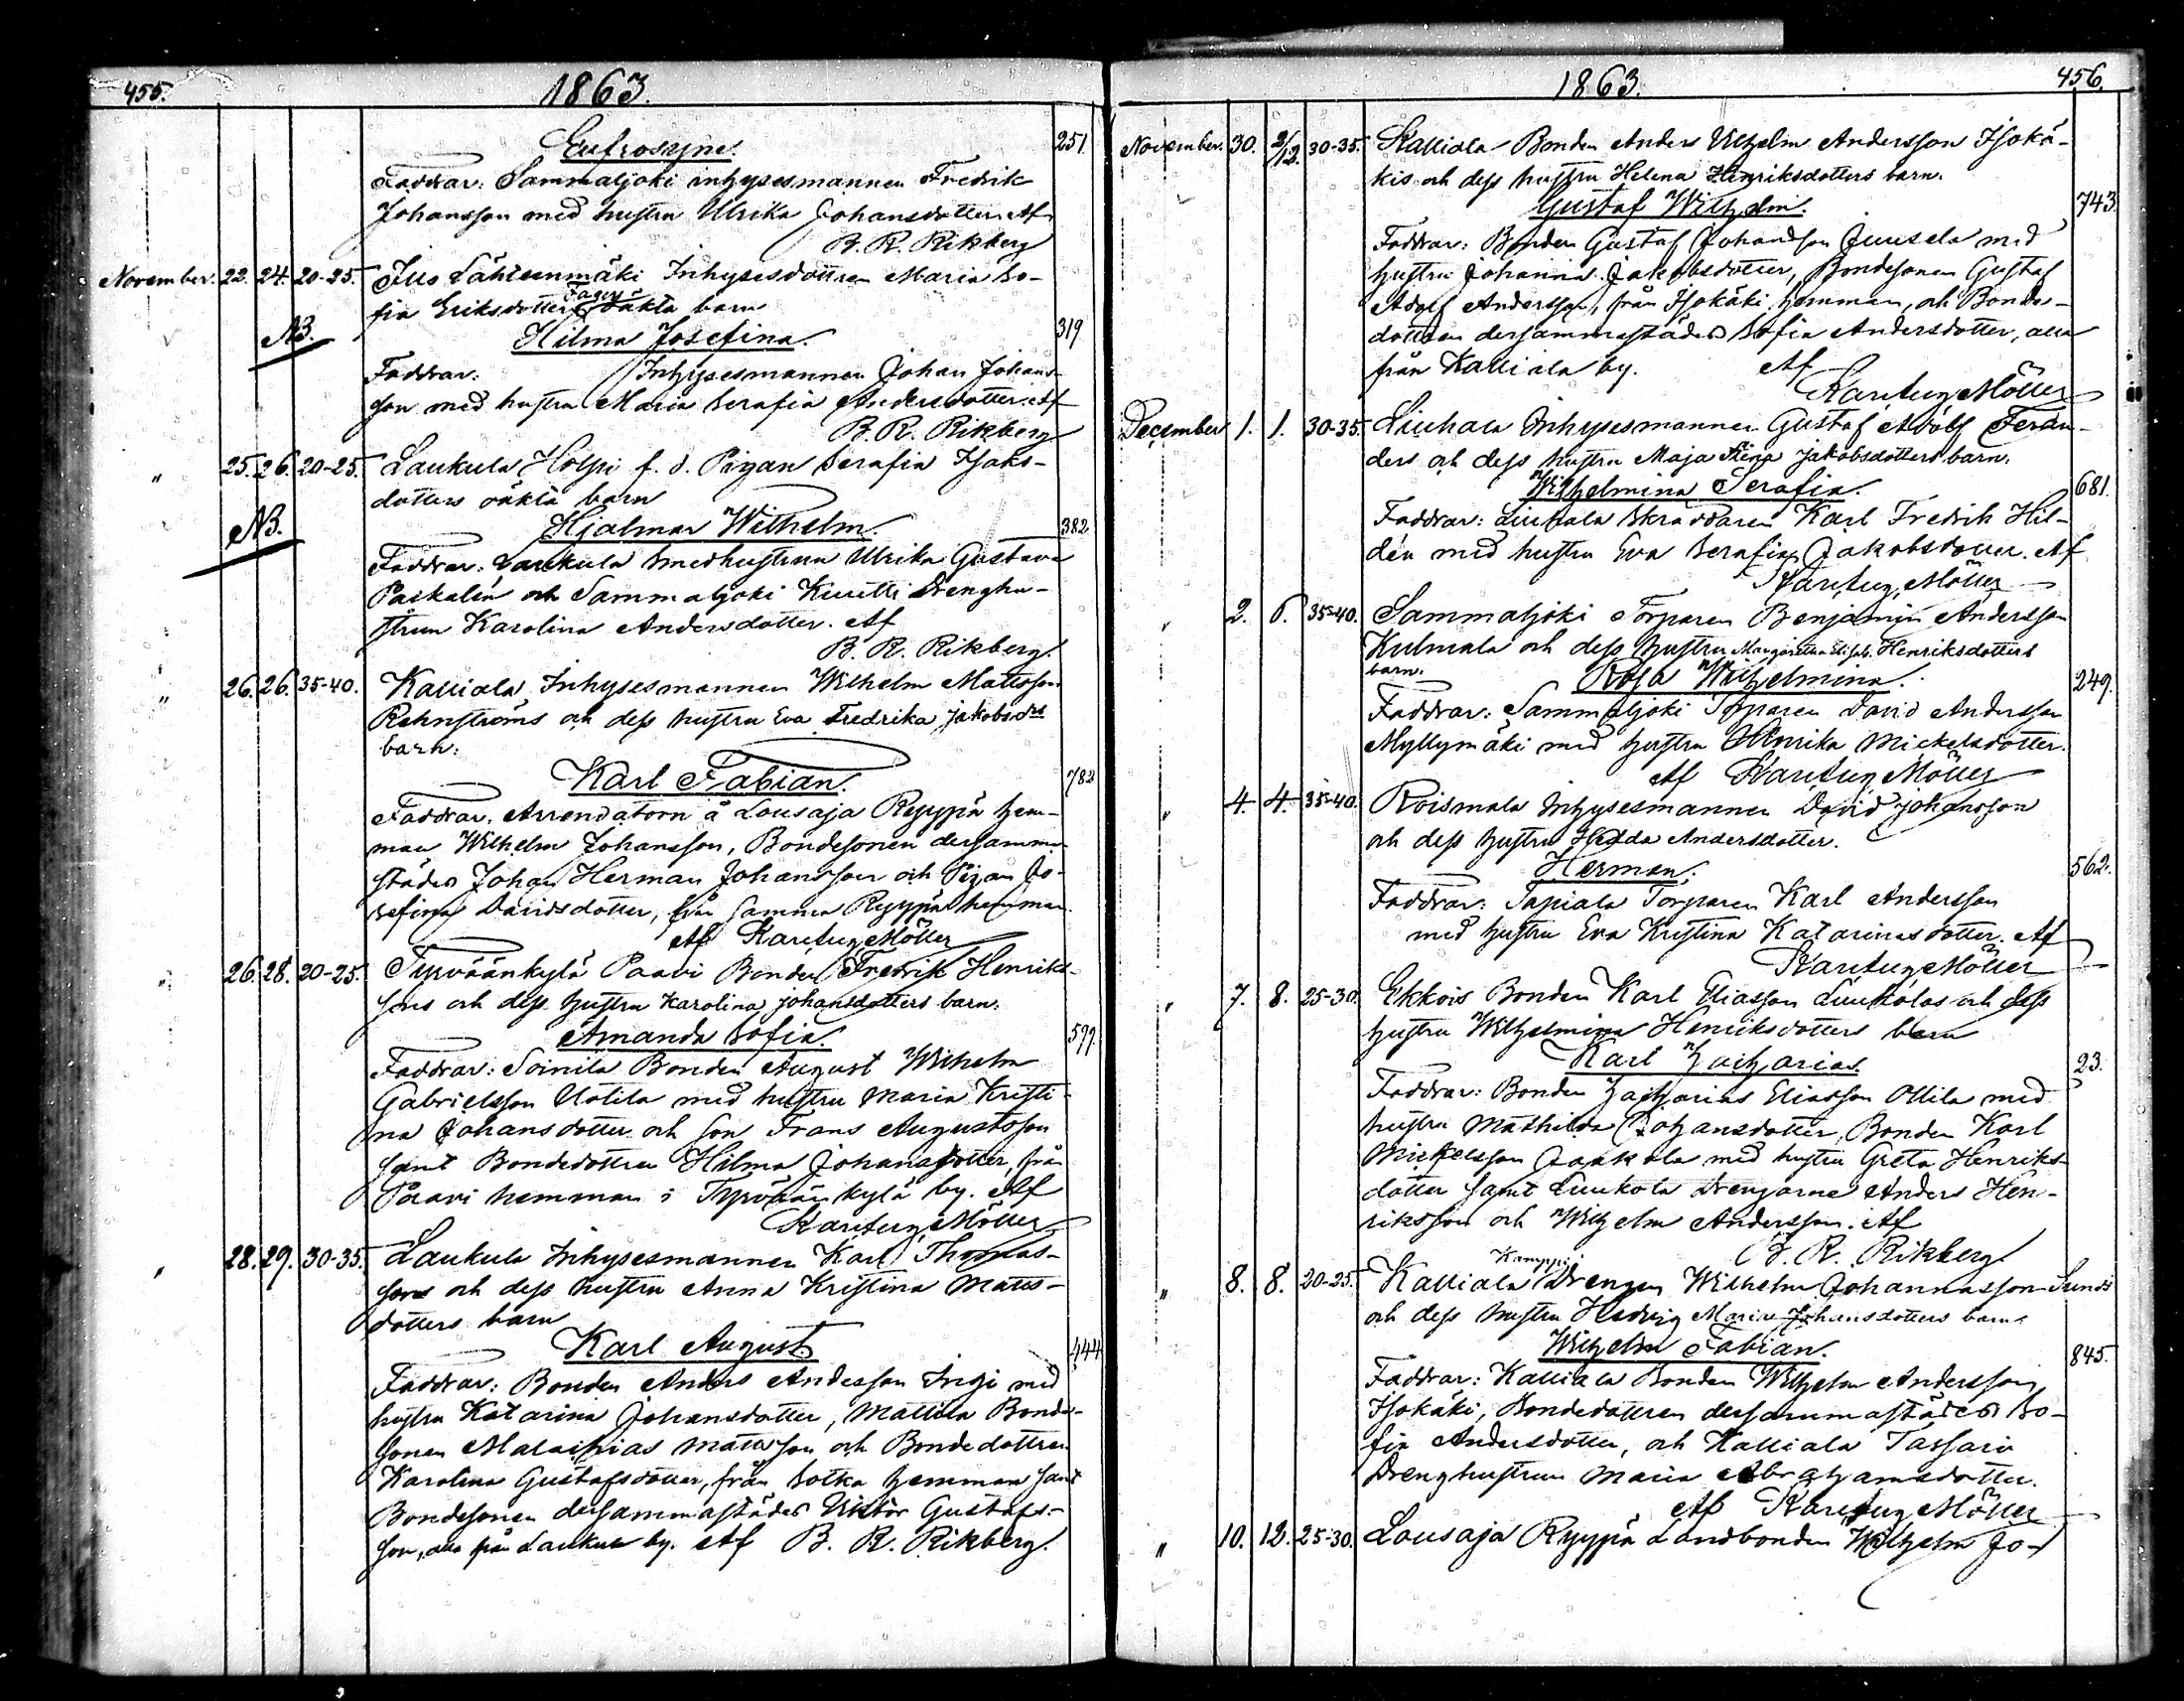 455.
1863.
Eufrosyne. 251
Faddrar: Sammaljoki inhysesmannen Fredrik
Johansson med hustru Ulrika Johansdotter. Af
B. R. Rikberg
November. 22. 24. 20-25. Lähteenmäki Inhysesdottren Maria So-
fia Eriksdotters oäkta barn
NB. Hilma Josefina. 319
Faddrar: Inhysesmannen Johan Johans-
son med hustru Maria Serafia Andersdotter. Af
B. R. Rikberg
" 25. 26. 20-25. Laukula Holpi f. d. Pigan Serafia Isaks-
dotters oäkta barn
NB. Hjalmar Wilhelm. 382
Faddrar: Laukula Smedhustrun Ulrika Gustava
Paskalin och Sammaljoki Kuutti Drenghu-
strun Karolina Andersdotter. Af
B. R. Rikberg.
" 26. 26. 35-40. Kalliala Inhysesmannen Wilhelm Mattsson
Rehnströms och dess hustru Eva Fredrika Jakobsdrs
barn:
Karl Fabian. 782
Faddrar. Arrendatorn å Lousaja Ryyppä hem-
man Wilhelm Johansson, Bondesonen dersamma-
städes Johan Herman Johansson och Pigan Jo-
sefina Davidsdotter, från samma Ryyppä hemman.
Af Karl Aug. Möller
" 26. 28. 20-25. Tyrväänkylä Paavi Bonden Fredrik Henriks-
sons och dess hustru Karolina Johansdotters barn.
Amanda Sofia. 599.
Faddrar: Soinila Bonden August Wilhelm
Gabrielsson Uotila med hustru Maria Kristi-
na Johansdotter och son Frans Augustsson
samt Bondedottren Hilma Johansdotter, från
Paavi hemman i Tyrväänkylä by. Af
Karl Aug. Möller
" 28. 29. 30-35. Laukula Inhysesmannen Karl Thomas-
sons och dess hustru Anna Kristina Matts-
dotters barn
Karl August. 444
Faddrar: Bonden Anders Andersson Ingi med
hustru Katarina Johansdotter, Mattila Bonde-
sonen Malachias Mattsson och Bondedottren
Karolina Gustafsdotter, från Sotka hemman samt
Bondesonen dersammastädes Viktor Gustafs-
son, alla från Laukula by. Af B. R. Rikberg.
1863.
456.
November. 30. 2/12. 30-35. Kalliala Bonden Anders Wilhelm Andersson Isokä-
kis och dess hustru Helena Henriksdotters barn.
Gustaf Wilhelm. 743
Faddrar: Bonden Gustaf Johansson Juusela med
hustru Johanna Jakobsdotter, Bondesonen Gustaf
Adolf Andersson, från Isokäki hemman, och Bonde-
dottren dersammastädes Sofia Andersdotter, alla
från Kalliala by. Af
Karl Aug. Möller
December 1. 1. 30-35. Liuhala Inhysesmannen Gustaf Adolf
och dess hustru Maja Stina Jakobsdotters barn.
Wilhelmina Serafia. 681.
Faddrar: Liuhala Skräddaren Karl Fredrik Hil-
dén med hustru Eva Serafia Jakobsdotter. Af
Karl Aug. Möller
" 2. 6. 35-40. Sammaljoki Torparen Benjamin Andersson
Kulmala och dess hustru Margaretha Elisab. Henriksdotters
barn.
Rosa Wilhelmina. 249.
Faddrar: Sammaljoki Torparen David Andersson
Myllymäki med hustru Henrika Mickelsdotter.
Af Karl Aug. Möller
" 4. 4. 35-40. Roismala Inhysesmannen David Johansson
och dess hustru Hedda Andersdotter.
Herman. 562.
Faddrar: Tapiala Torparen Karl Andersson
med hustru Eva Kristina Katarinasdotter. Af
Karl Aug. Möller
" 7. 8. 25-30. Ekkois Bonden Karl Eliasson Liukolas och dess
hustru Wilhelmina Henriksdotters barn
Karl Zacharias. 23.
Faddrar: Bonden Zacharias Eliasson Ollila med
hustru Mathilda Johansdotter, Bonden Karl
Mickelsson Jaakola med hustru Greta Henriks-
dotter samt Liukola Drengarne Anders Hen-
riksson och Wilhelm Andersson. Af
B. R. Rikberg
Kamppi
" 8. 8. 20-25. Kalliala Drengen Wilhelm Johannasson Sund
och dess hustru Hedvig Maria Johansdotters barn.
Wilhelm Fabian. 845.
Faddrar: Kalliala Bonden Wilhelm Andersson
Isokäki, Bondedottren dersammastädes So-
fia Andersdotter, och Kalliala Tassari
Drenghustrun Maria Abrahamsdotter.
Af Karl Aug. Möller
" 10. 12. 25-30. Lousaja Ryyppä Landbonden Wilhelm Jo-